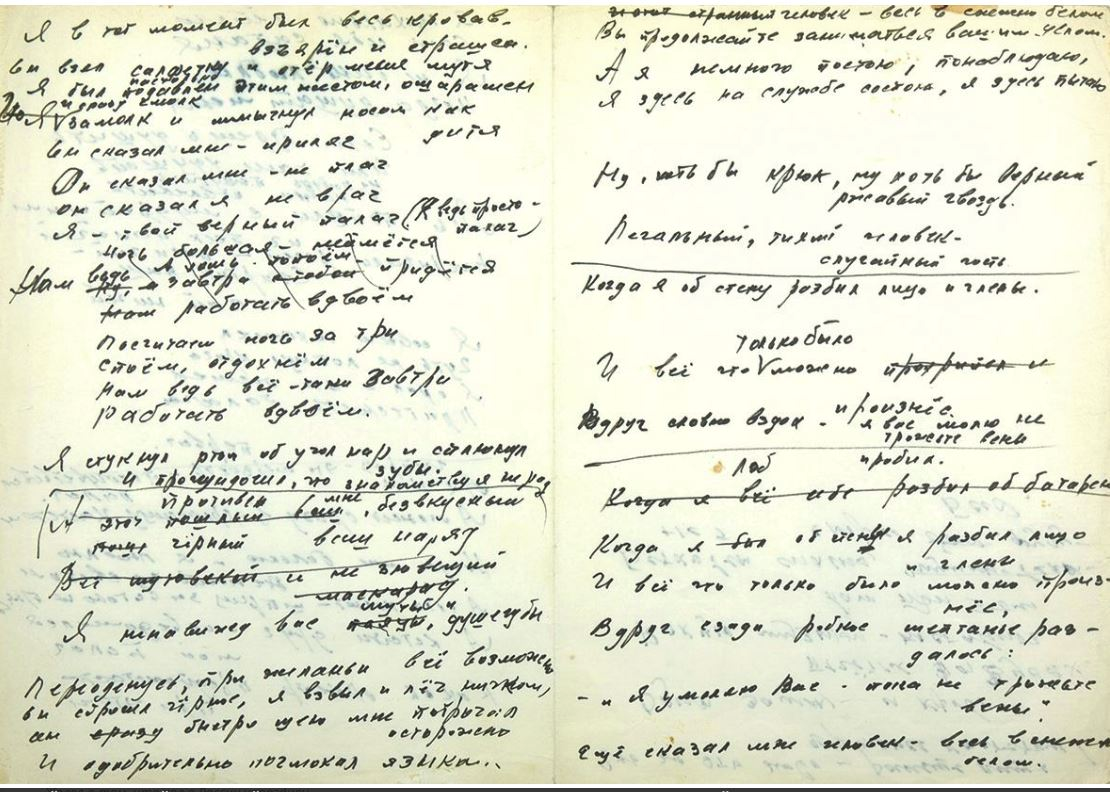 Я в тот момент был весь кровав,
взъярён и страшен.
Он взял салфетку и отёр меня шутя
Я был подавлен этим жестом, ошарашен
и сразу смолк
Но Я замолк и шмыгнул носом как
дитя
Он сказал мне - приляг
Он сказал мне - не плач
он сказал я не врач
Я - твой верный палач (Я ведь просто -
палач)
Ночь большая - неймётся
А хошь споём
Нам ведь завтра с тобой придётся
Нам работать вдвоём
Посчитаем ночь за три
споём, отдохнём
Нам ведь всё-таки завтра
работать вдвоём.
Я стукнул ртом об угол нар и сплюнул
зубы.
И прогундосил, что знакомству я не рад
Противен мне безвкусный
А этот пошлый ваш
чёрный ваш наряд
Всё шутовской и не зловещий
маскарад.
Я ненавижу вас, душегубы
Переоденусь, при желаньи всё возможно
он сбросил чёрное, я взвыл и лёг ничком,
он сразу быстро шею мне потрогал
осторожно
И одобрительно почмокал языком..
этот странный человек - весь в снежно белом
Вы продолжайте заниматься вашим делом.
А я немного постою, понаблюдаю,
Я здесь на службе состою, я здесь пытаю
Ну, хоть бы крюк, ну хоть бы верный
ржавый гвоздь.
Печальный, тихий человек -
случайный гость
Когда я об стену разбил лицо и члены.
только было
И всё что можно и
произнёс
Вдруг словно вздох - я вас молю не
троньте вены
Лоб пробил.
Когда я всё себе разбил об батарею
Когда я был об стену я разбил лицо
и члены
И всё что только было можно произ-
нёс,
Вдруг сзади робкое шептанье раз-
далось:
- "Я умоляю Вас - пока не троньте
вены".
Ещё сказал мне человек - весь в снежно
белом.